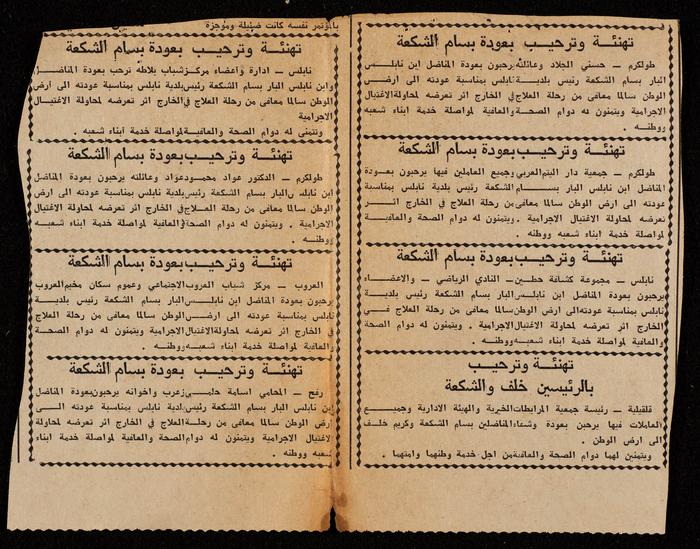 تهنئة وترحيب بعودة بسام الشكعة
طولكرم ــ حسني الجلاد وعائلته يرحبون بعودة المناضل ابن نابلس
البار بسام الشكعة رئيس بلدية نابلس بمناسبة عودته الى ارض
الوطن سالما معافى من رحلة العلاج في الخارج اثر تعرضه لمحاولة الاغتيال
الاجرامية ويتمنون له دوام الصحة والعافية لمواصلة خدمة ابناء شعبه
ووطنه .
تهنئة وترحيب بعودة بسام الشكعة
طولكرم ــ جمعية دار اليتم العربي وجميع العاملين فيها يرحبون بعودة
المناضل ابن نابلس البار بسام الشكعة رئيس بلدية نابلس بمناسبة
عودته الى ارض الوطن سالما معافى من رحلة العلاج في الخارج اثر
تعرضه لمحاولة الاغتيال الاجرامية . ويتمنون له دوام الصحة والعافية
لمواصلة خدمة ابناء شعبه ووطنه .
تهنئة وترحيب بعودة بسام الشكعة
نابلس ــ مجموعة كشافة حطين ــ النادي الرياضي ــ والاعضاء
يرحبون بعودة المناضل ابن نابلس البار بسام الشكعة رئيس بلدية
نابلس بمناسبة عودته الى ارض الوطن سالما معافى من رحلة العلاج في
الخارج اثر تعرضه لمحاولة الاغتيال الاجرامية . ويتمنون له دوام الصحة
والعافية لمواصلة خدمة ابناء شعبه ووطنه .
تهنئة وترحيب
بالرئيسين خلف والشكعة
قلقيلية ــ رئيسة جمعية المرابطات الخيرية والهيئة الادارية وجميع
العاملات فيها يرحبن بعودة وشفاء المناضلين بسام الشكعة وكريم خلف
الى ارض الوطن .
ويتمنين لهما دوام الصحة والعافية من اجل خدمة وطنهما وامتهما .
بالمؤتمر نفسه كانت ضئيلة وموجزة
تهنئة وترحيب بعودة بسام الشكعة
نابلس ــ ادارة واعضاء مركز شباب بلاطه ترحب بعودة المناضل
وابن نابلس البار بسام الشكعة رئيس بلدية نابلس بمناسبة عودته الى ارض
الوطن سالما معافى من رحلة العلاج في الخارج اثر تعرضه لمحاولة الاغتيال
الاجرامية
ونتمنى له دوام الصحة والعافية لمواصلة خدمة ابناء شعبه .
تهنئة وترحيب بعودة بسام الشكعة
طولكرم ــ الدكتور عواد محمود عواد وعائلته يرحبون بعودة المناضل
ابن نابلس البار بسام الشكعة رئيس بلدية نابلس بمناسبة عودته الى ارض
الوطن سالما معافى من رحلة العلاج في الخارج اثر تعرضه لمحاولة الاغتيال
الاجرامية . ويتمنون له دوام الصحة والعافية لمواصلة خدمة ابناء شعبه
ووطنه .
تهنئة وترحيب بعودة بسام الشكعة
العروب ــ مركز شباب العروب الاجتماعي وعموم سكان مخيم العروب
يرحبون بعودة المناضل ابن نابلس البار بسام الشكعة رئيس بلدية
نابلس بمناسبة عودته الى ارض الوطن سالما معافى من رحلة العلاج
في الخارج اثر تعرضه لمحاولة الاغتيال الاجرامية ويتمنون له دوام الصحة
والعافية لمواصلة خدمة ابناء شعبه ووطنه .
تهنئة وترحيب بعودة بسام الشكعة
رفح ــ المحامي اسامة حلمي زعرب واخوانه يرحبون بعودة المناضل
ابن نابلس البار بسام الشكعة رئيس بلدية نابلس بمناسبة عودته الى
ارض الوطن سالما معافى من رحلة العلاج في الخارج اثر تعرضه لمحاولة
الاغتيال الاجرامية ويتمنون له دوام الصحة والعافية لمواصلة خدمة ابناء
شعبه ووطنه .